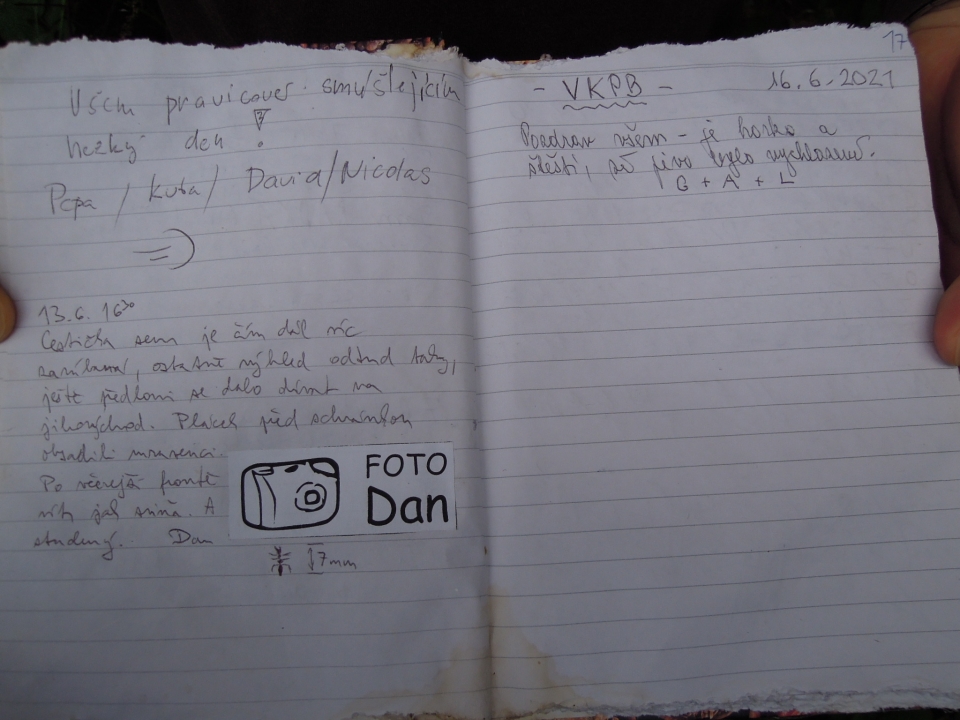 Všem pravicověr. smýšlejícím
hezký den !
Pepa / Kuba / David / Nicolas
13.6. 16³⁰
Cestička sem je čím dál víc
zarůbaná, ostatně výhled odsud taky,
ještě předloni se dalo dívat na
jihovýchod. Plácek před schránkou
obsadili mravenci.
Po včerejší frontě
vítr jak sviňa. A
studený. Dan
FOTO
Dan
7mm
17
- VKPB -
16.6.2021
Pozdrav všem - je horko a
štěstí, že pivo bylo vychlazené.
G + A + L